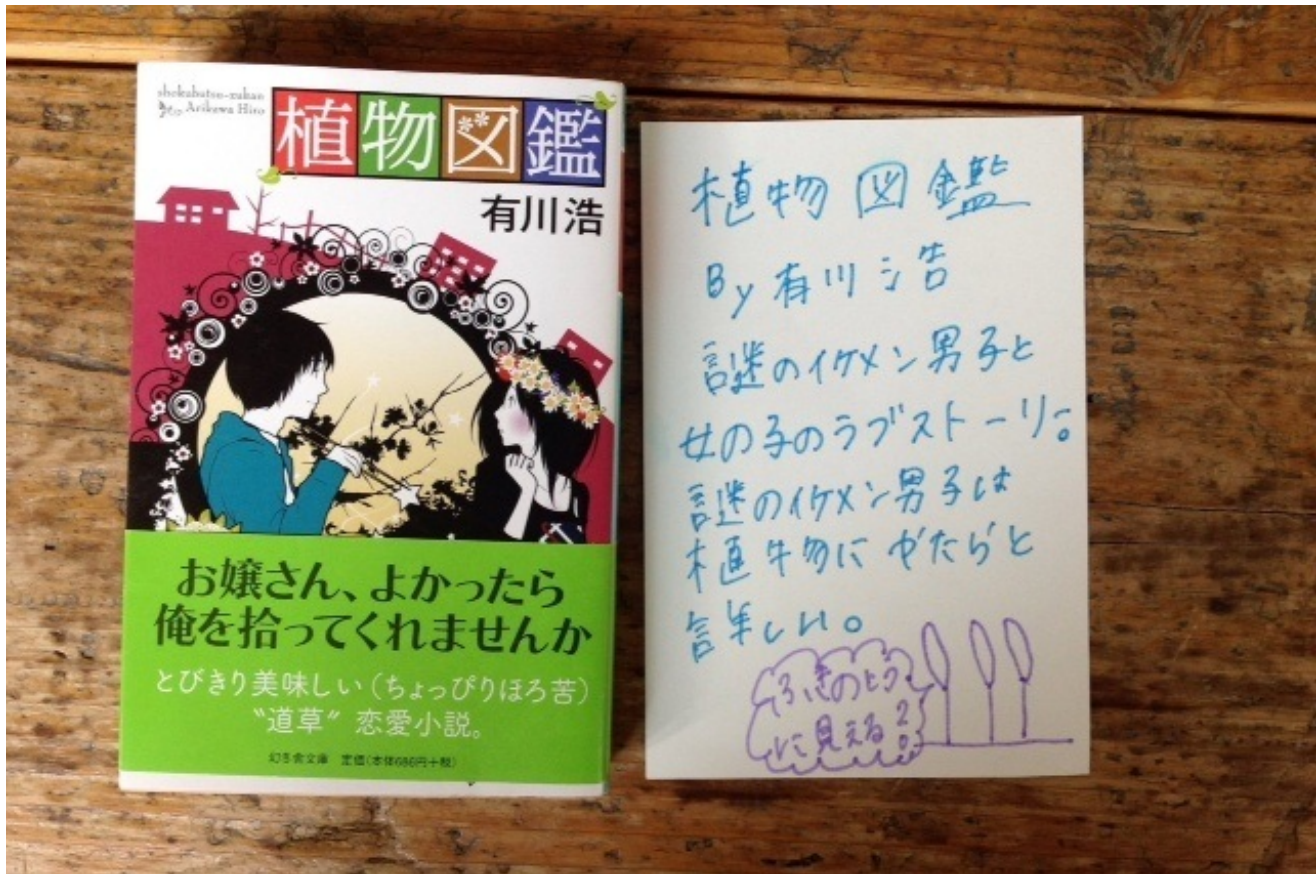 shokubutsu-zukan
by Arikawa Hiro
植物図鑑
有川浩
お嬢さん、よかったら
俺を拾ってくれませんか
とびきり美味しい(ちょっぴりほろ苦)
“道草” 恋愛小説。
幻冬舎文庫 定価(本体686円+税)
植物図鑑
By 有川浩
謎のイケメン男子と
女の子のラブストーリー。
謎のイケメン男子は
植物にやたらと
詳しい。
ふきのとう
に見える?。